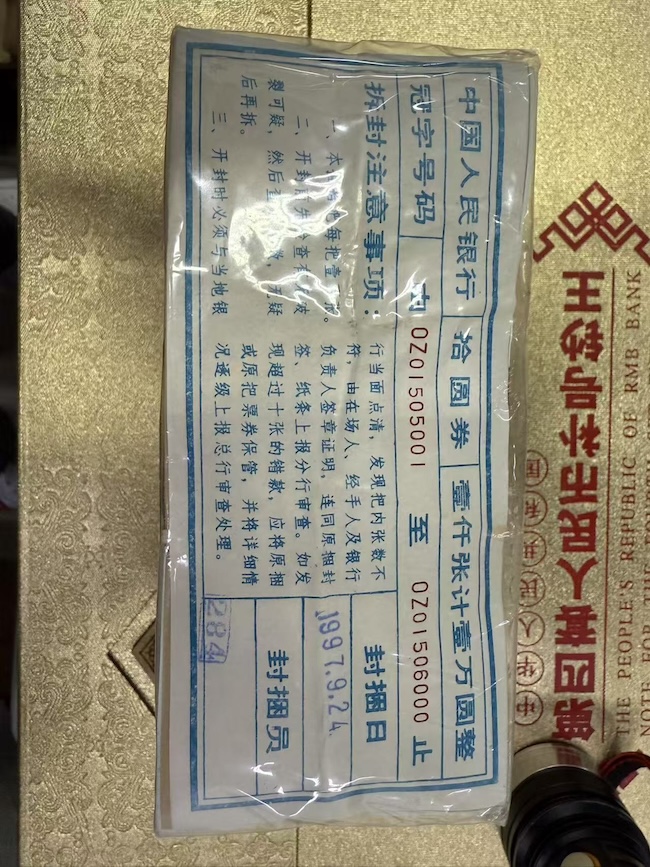 中国人民银行 拾圆券 壹仟张计壹万圆整
冠字号码 由 OZ01505001 至 OZ01506000 止
拆封注意事项：
一、本 把每把壹
二、开封 查 破
裂可疑，然后 无疑
后再拆。
三、开封时必须与当地银
行当面点清，发现把内张数不
符，由在场人、经手人及银行
负责人签章证明，连同原捆封
签、纸条上报分行审查。如发
现超过十张的错款，应将原捆
或原把票券保管，并将详细情
况逐级上报总行审查处理。
封捆日
1997.9.24.
封捆员
284
第四套人民币补号钞王
中华人民共和国
THE PEOPLE'S REPUBLIC OF RMB BANK
NOTE FOR THE